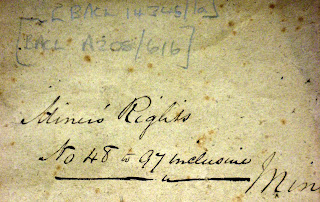 BACL 14306/16]
[BACL A208/616]
Miner's Rights
No 48 to 97 inclusive
Min